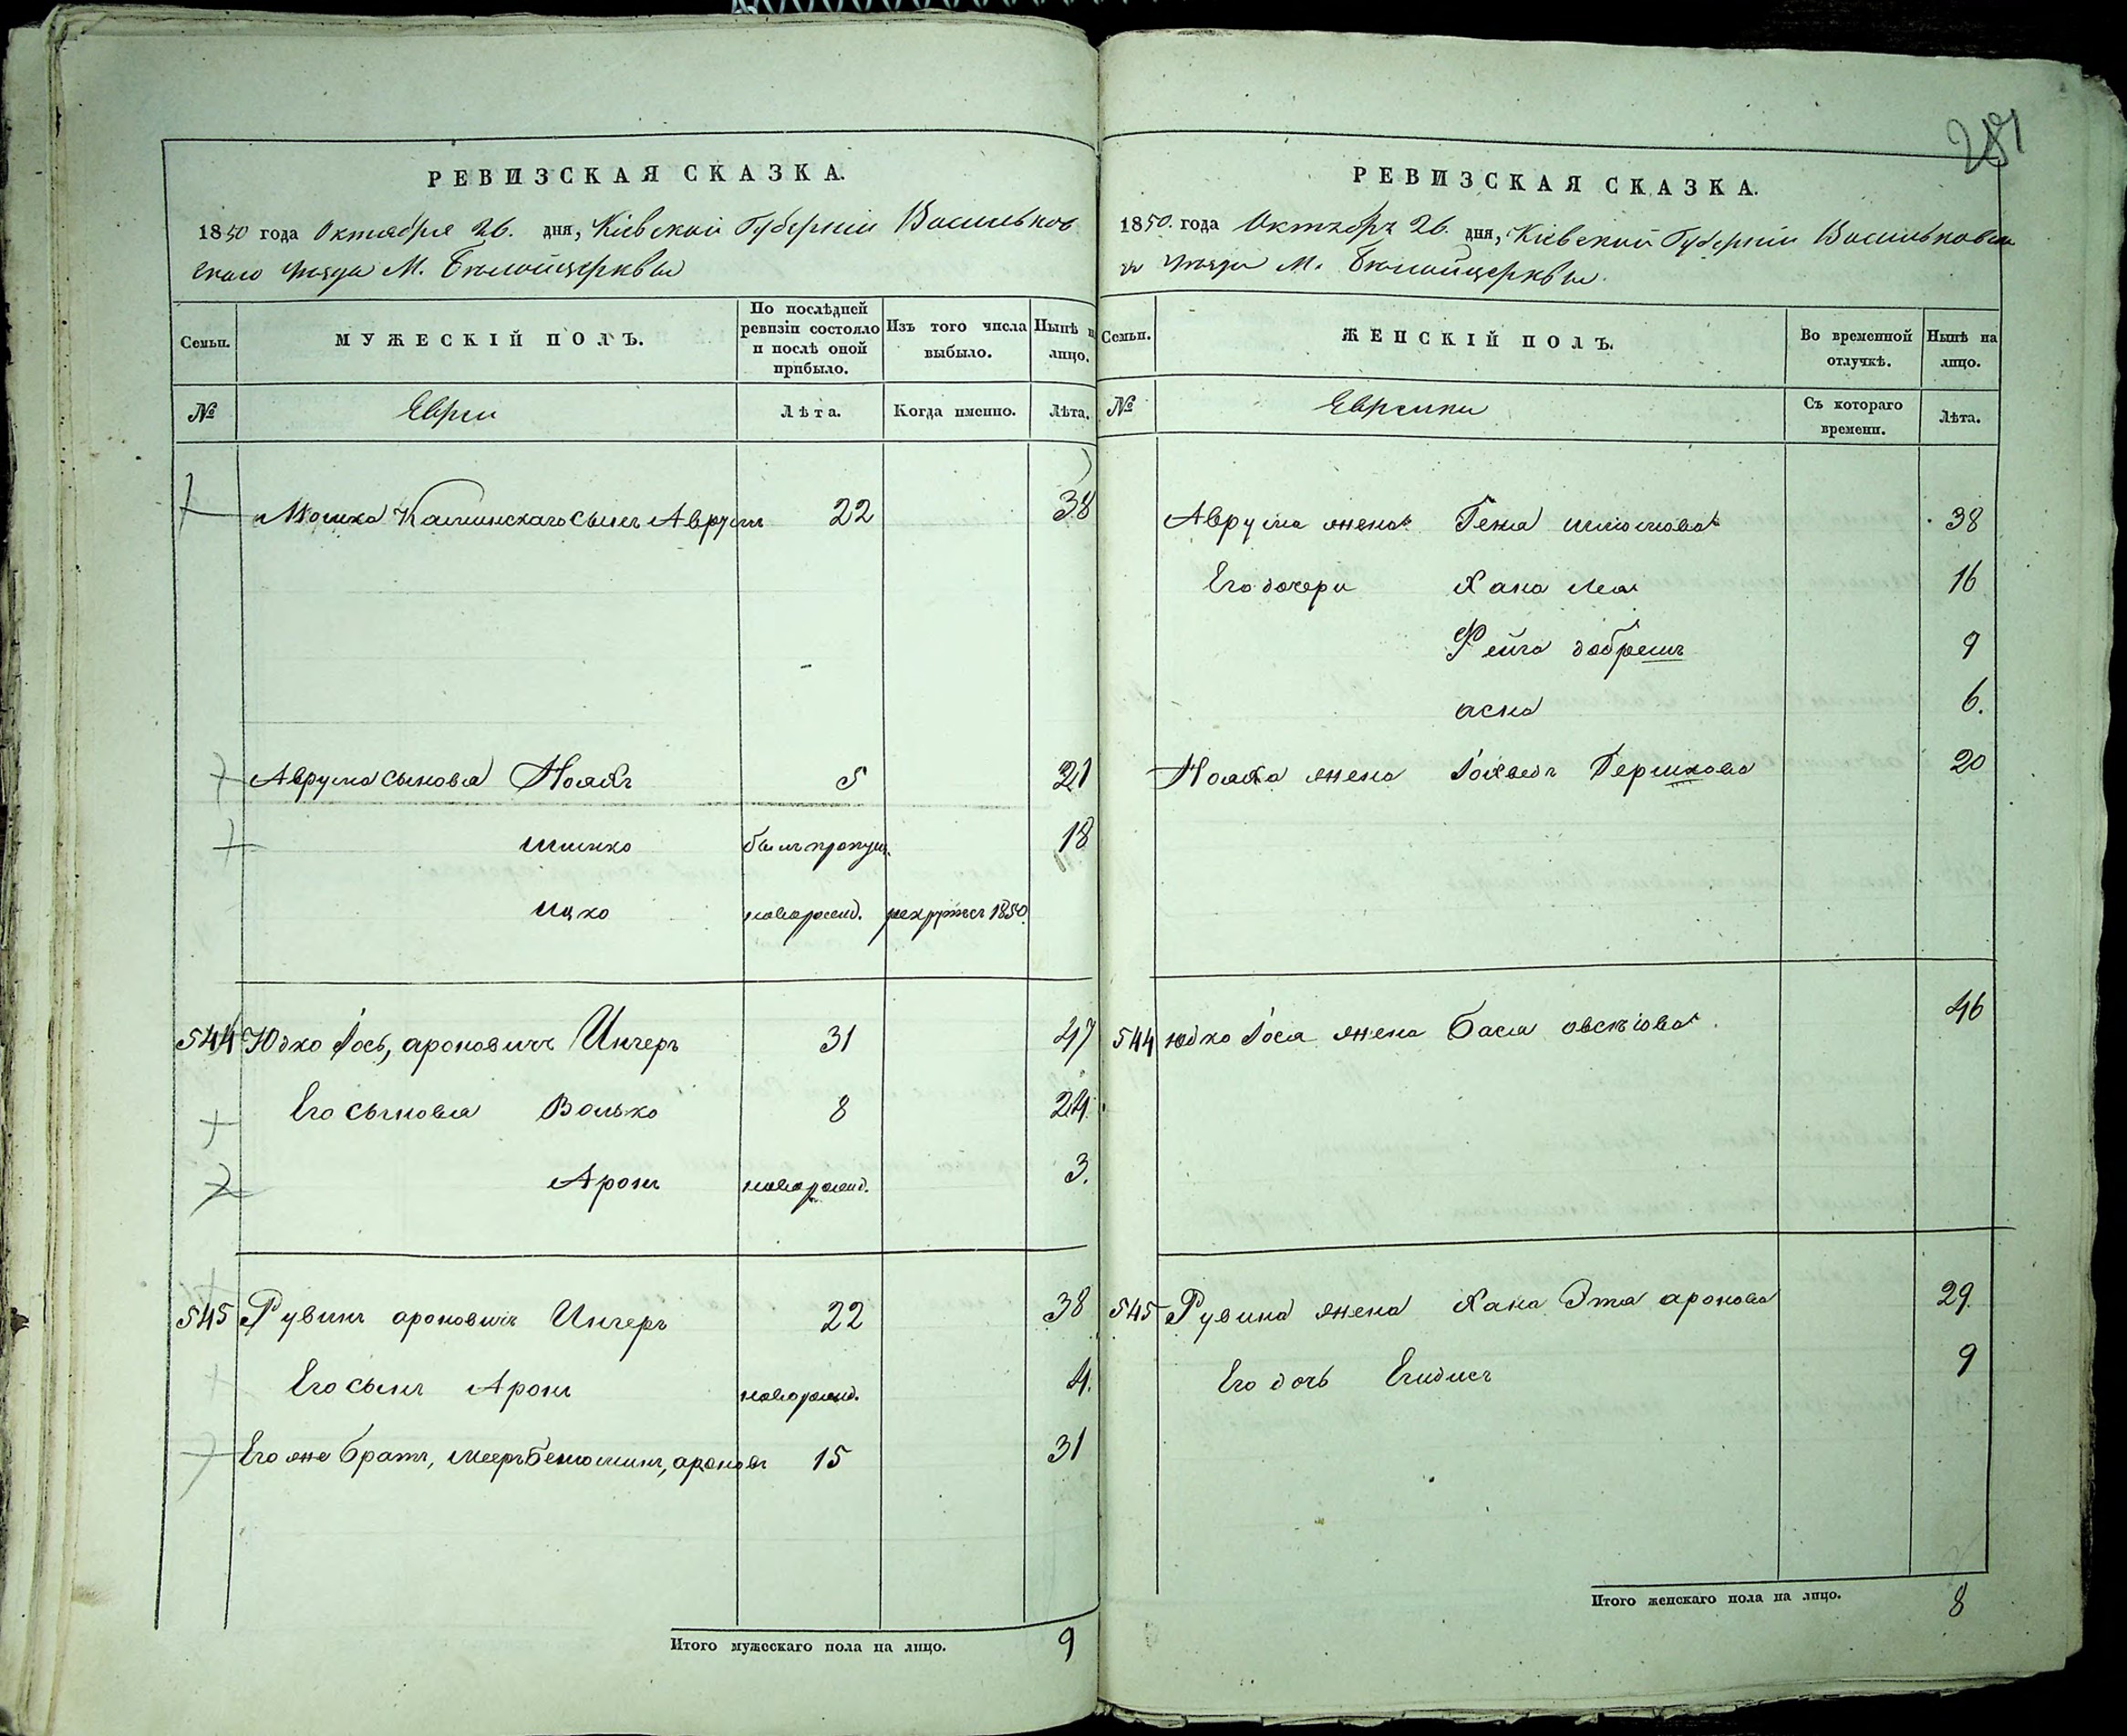 287
РЕВИЗСКАЯ СКАЗКА.
1850 года Октября 26. дня, Кіевской Губерніи Васильков
скаго уѣзда М. Бѣлойцеркви
Семьи.
МУЖЕСКІЙ ПОЛЪ.
По послѣдней ревизіи состояло и послѣ оной прибыло.
Изъ того числа выбыло.
Нынѣ на лицо.
№
Евреи
Лѣта.
Когда именно.
Лѣта.
Мошка Каминскаго сынъ Аврумъ 22 38
Аврума сыновья Ноахъ 5 21
Шимко былъ пропущ. 18
Ицко новорожд. рекрутъ 1850.
544 Юдко Іось, ароновичъ Ингеръ 31 47
Его сыновья Волько 8 24.
Аронъ новорожд. 3.
545 Рувинъ ароновичъ Ингеръ 22 38
Его сынъ Аронъ новорожд. 4.
Его же братъ, Мееръ Бенюминъ, ароновъ 15 31
Итого мужескаго пола на лицо. 9
РЕВИЗСКАЯ СКАЗКА.
1850. года Октября 26. дня, Кіевской Губерніи Васильковска
го уѣзда М. Бѣлойцеркви.
Семьи.
ЖЕНСКІЙ ПОЛЪ.
Во временной отлучкѣ.
Нынѣ на лицо.
№
Еврейки
Съ котораго времени.
Лѣта.
Аврума жена Геня Шлiомова 38
Его дочери Хана Лея 16
Фейга добрешъ 9
асна 6.
Ноаха жена Іохведъ Гершкова 20
544 юдко Іося жена Бася овсѣіова. 46
545 Рувина жена Хана Эта аронова 29.
Его дочь Егидисъ 9
Итого женскаго пола на лицо. 8